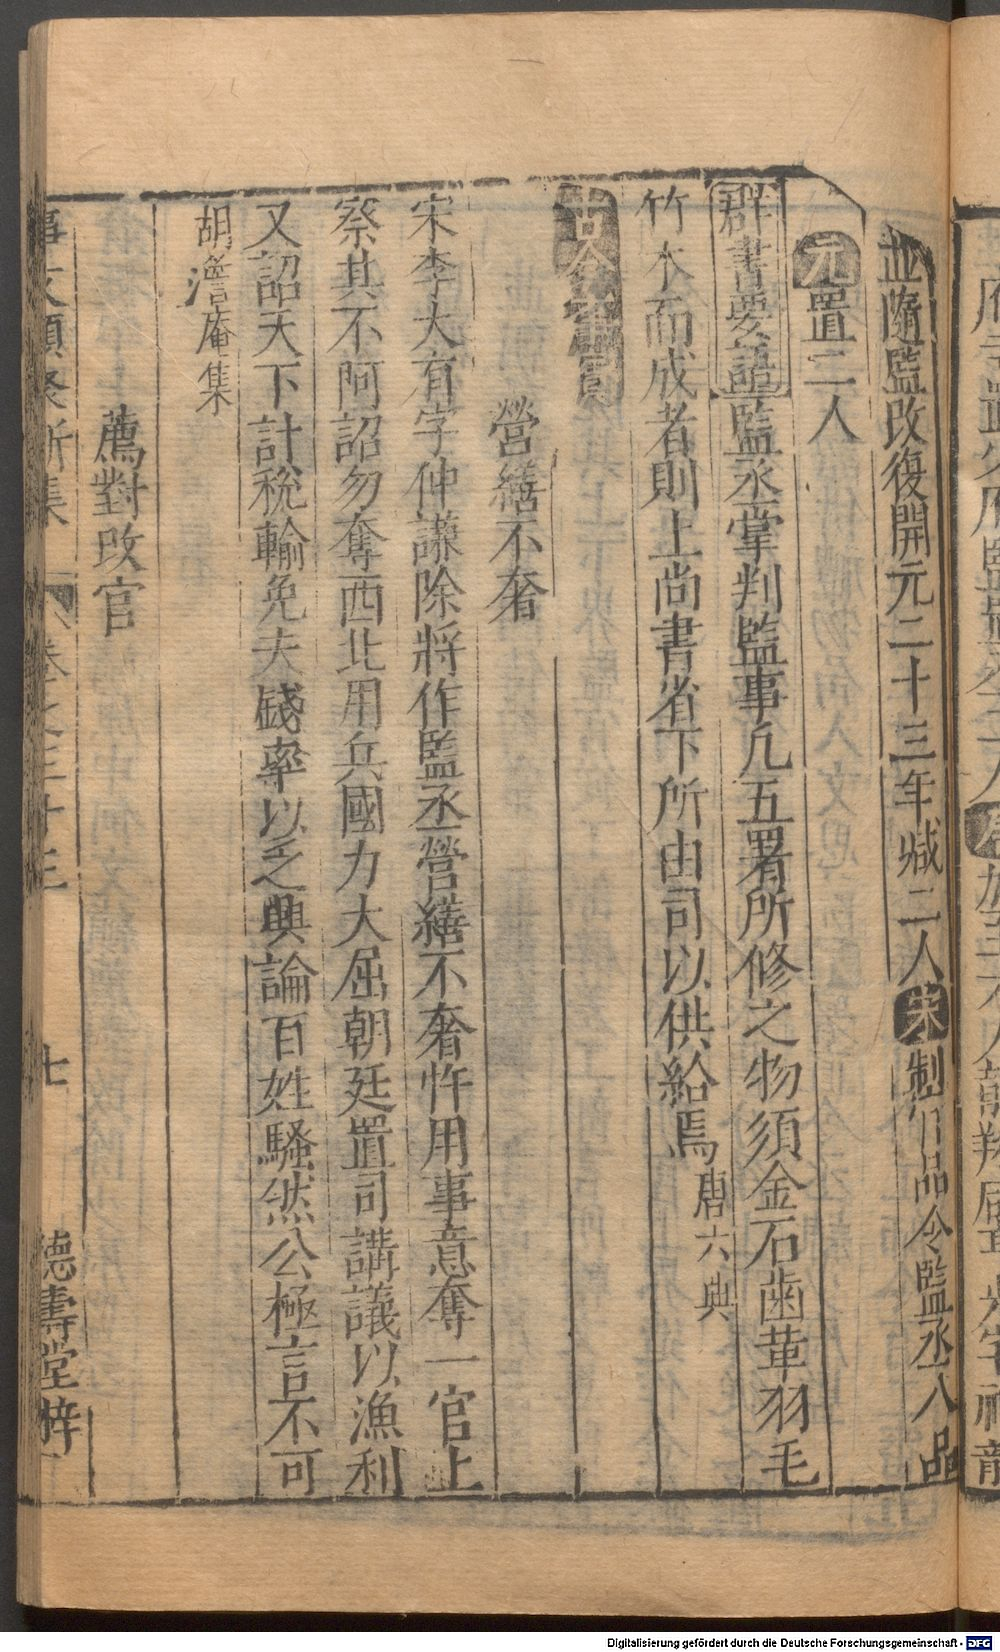 並隨監改復開元二十三年減二人宋制官品令監丞八品
元置二人
群書要語監丞掌判監事凡五署所修之物須金石齒革羽毛
竹木而成者則上尚書省下所由司以供給焉唐六典
古今事實
營繕不奢
宋李大有字仲謙除將作監丞營繕不奢忤用事意奪一官上
察其不阿詔勿奪西北用兵國力大屈朝廷置司講議以漁利
又詔天下計稅輸免夫錢率以乏興論百姓騷然公極言不可
胡澹庵集
薦對改官
事文類聚新集 卷之三十三 七 德壽堂梓
Digitalisierung gefördert durch die Deutsche Forschungsgemeinschaft - DFG